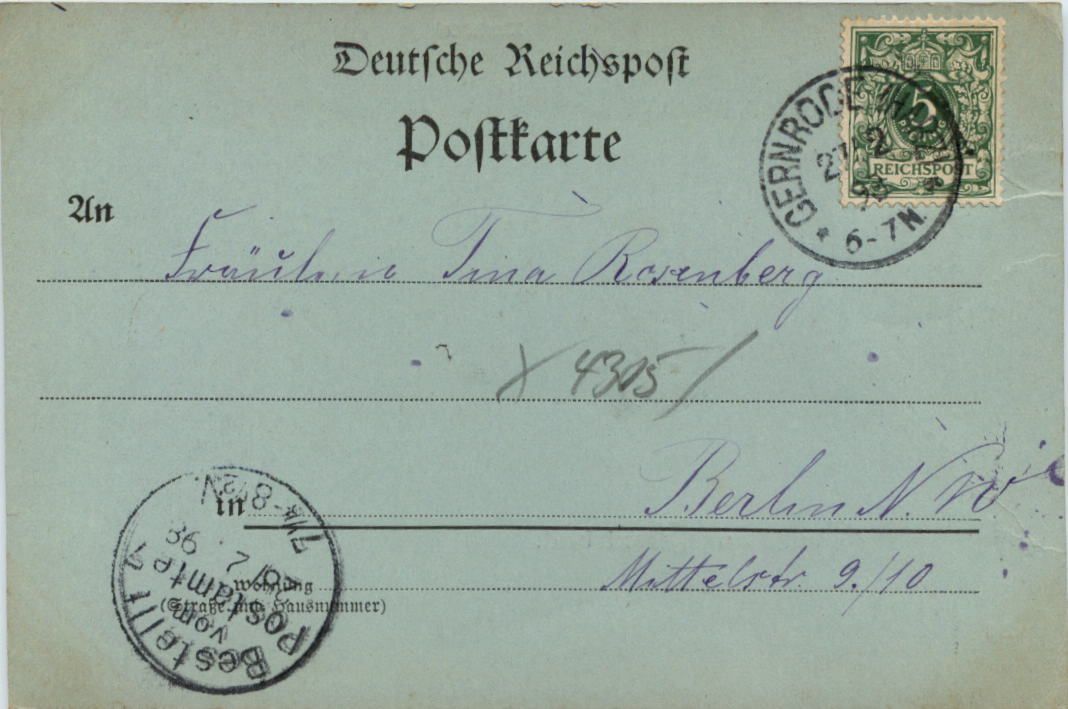 Deutsche Reichspost
Postkarte
5
REICHSPOST
GERNRODE (HARZ)
2
6-7N.
An
Fräulein Tina Rosenberg
4305
in
Berlin N.W
Wohnung
(Straße und Hausnummer)
Mittelstr. 9./10
Bestellt
vom
Postamte 7
7¼-8½N.